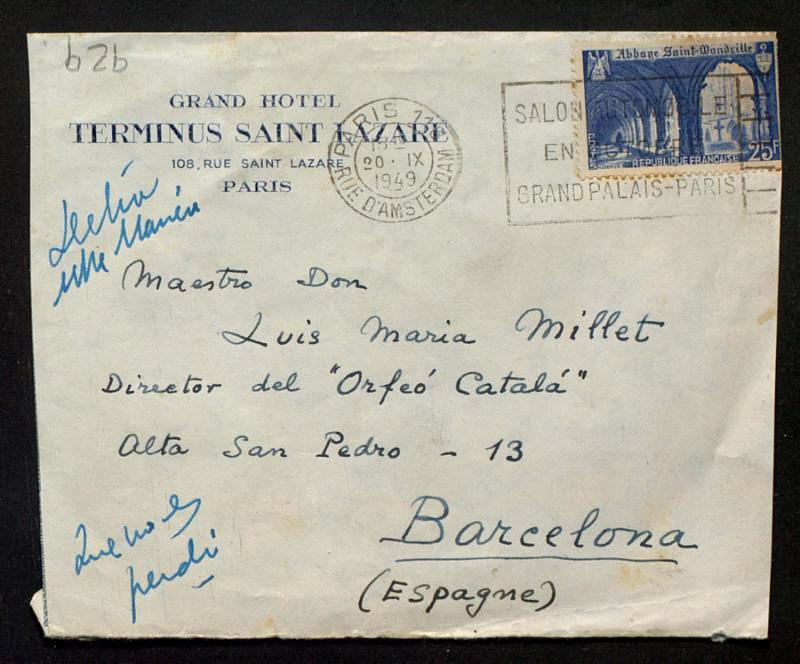 b2b
GRAND HOTEL
TERMINUS SAINT LAZARE
108, RUE SAINT LAZARE
PARIS
PARIS 11
20 · IX
1949
RUE D'AMSTERDAM
Abbaye Saint-Wandrille
POSTES
REPUBLIQUE FRANÇAISE
25F
SALON AUTOMOBILE
EN OCTOBRE
GRAND PALAIS-PARIS
Maestro Don
Luis Maria Millet
Director del "Orfeó Catalá"
Alta San Pedro - 13
Barcelona
(Espagne)
Que no es
perdi